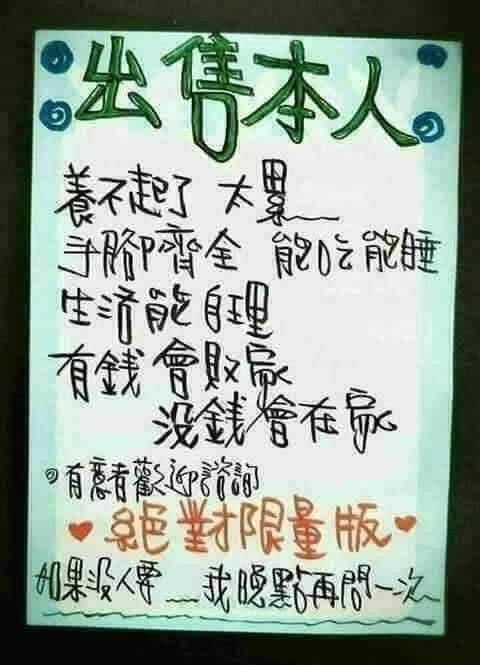 出售本人
養不起了 太累﹏
手腳齊全 能吃能睡
生活能自理
有錢會敗家
沒錢會在家
有意者歡迎諮詢
絕對限量版
如果沒人要﹏我晚點再問一次